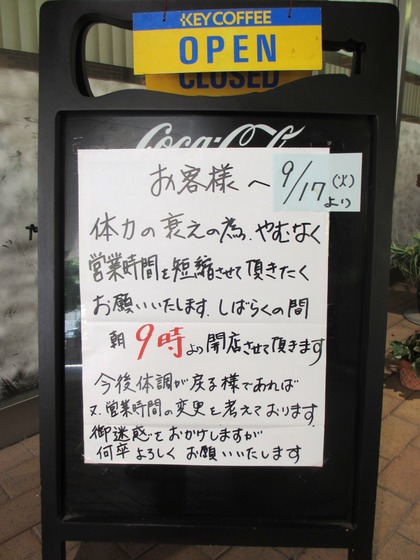 KEY COFFEE
OPEN
CLOSED
Coca-Cola
お客様へ
9/17(火)
より
体力の衰えの為、やむなく
営業時間を短縮させて頂きたく
お願いいたします。しばらくの間
朝 9時より開店させて頂きます
今後体調が戻る様であれば
又、営業時間の変更を考えております
御迷惑をおかけしますが
何卒よろしくお願いいたします